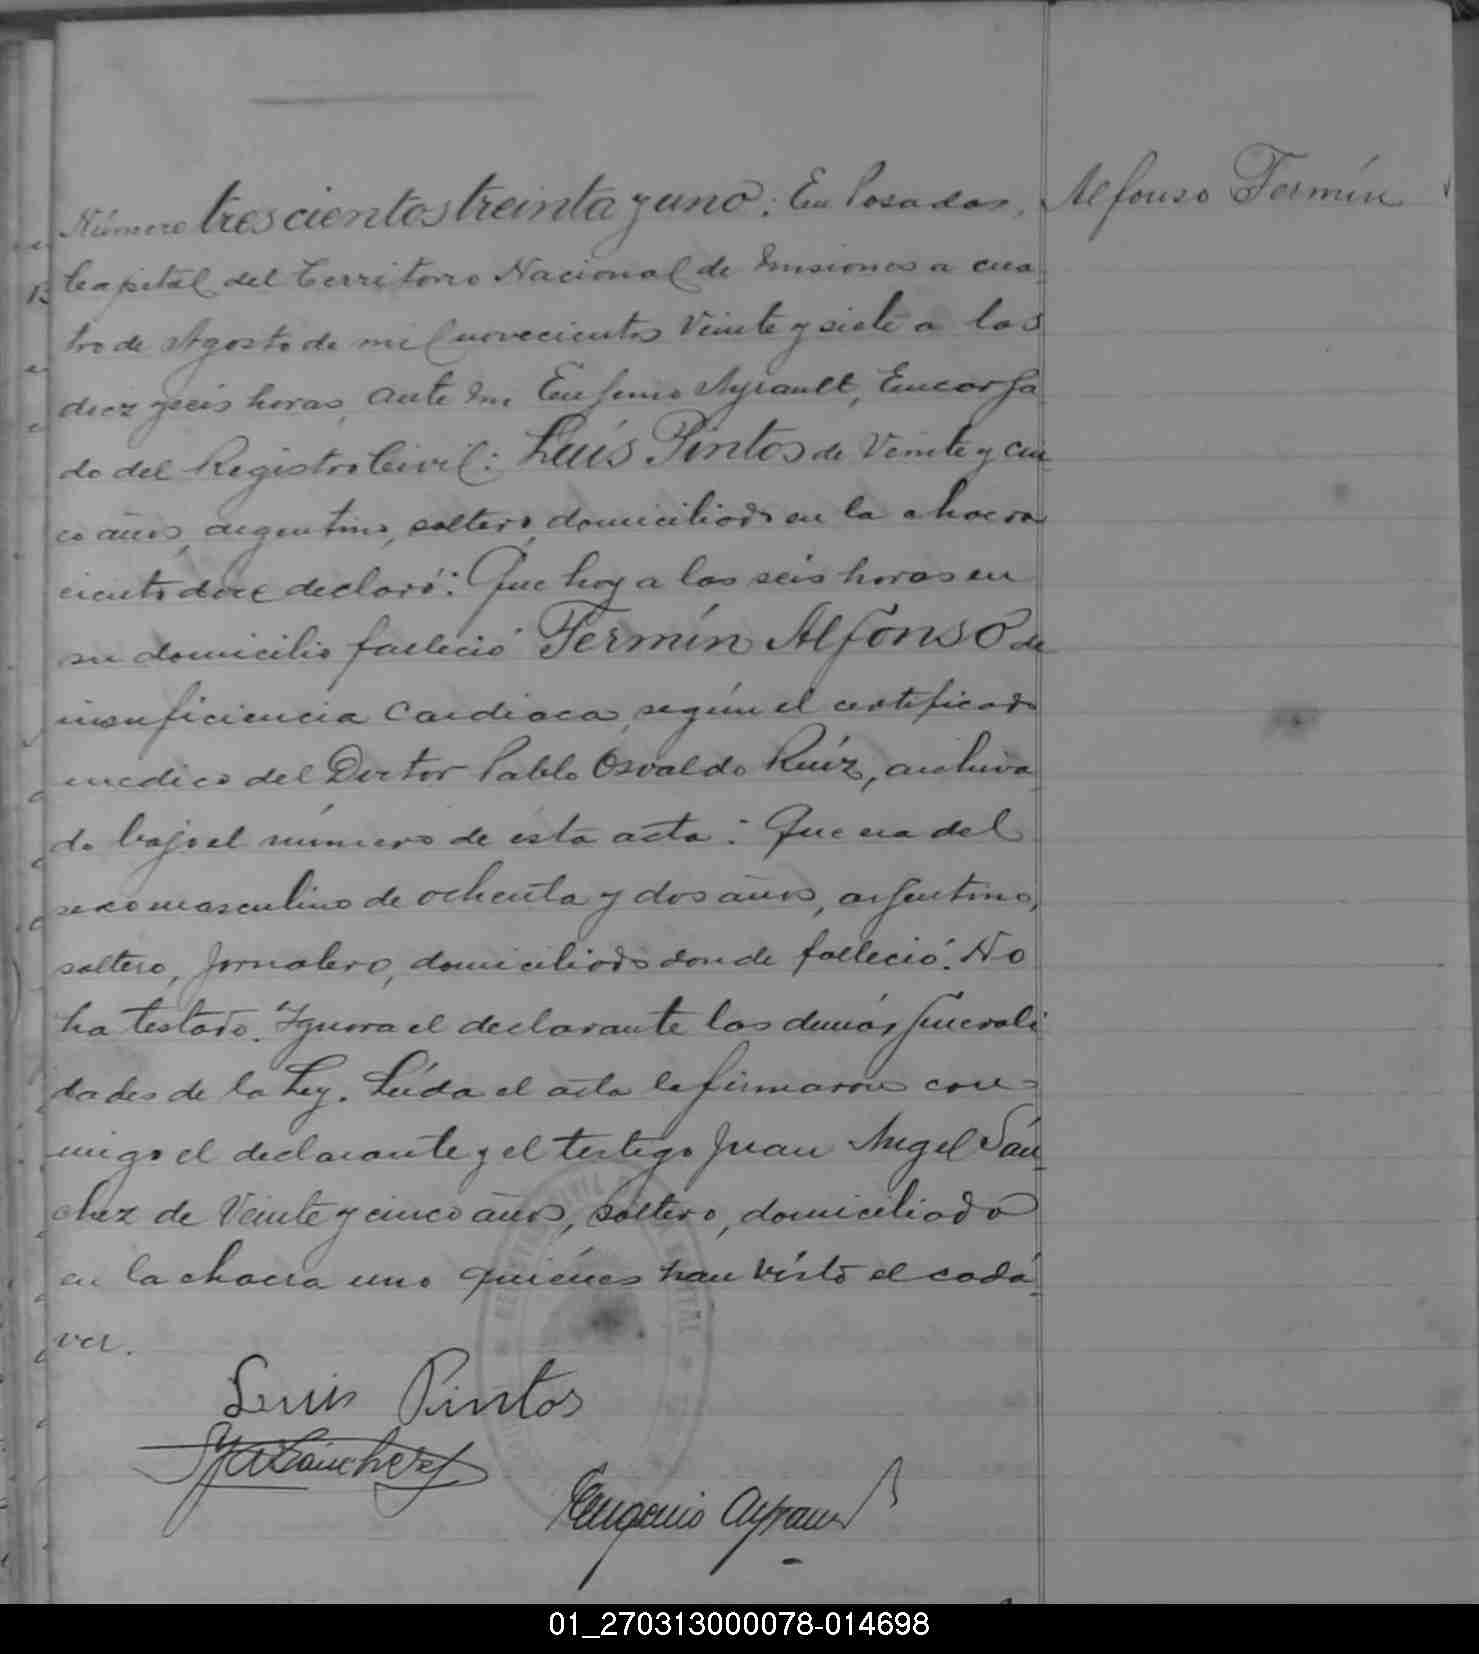 Número trescientos treinta y uno: En Posadas, Alfonso Fermín
Capital del Territorio Nacional de Misiones a cua
tro de Agosto de mil novecientos Veinte y siete a las
diez y seis horas, ante mi Eugenio Ayrault, Encarga
do del Registro Civil: Luís Pintos de Veinte y cin
co años, argentino, soltero, domiciliado en la chacra
ciento doce declaró: Que hoy a las seis horas en
su domicilio falleció Fermín Alfonso de
insuficiencia Cardiaca, según el certificado
medico del Doctor Pablo Osvaldo Ruíz, archiva
do bajo el número de esta acta: Que era del
sexo masculino de ochenta y dos años, argentino,
soltero, jornalero, domiciliado donde falleció. No
ha testado. Ignora el declarante las demás generali
dades de la Ley. Leída el acta la firmaron con
migo el declarante y el testigo Juan Angel Sán
chez de Veinte y cinco años, soltero, domiciliado
en la chacra uno quiénes han visto el cadá
ver.
Luis Pintos
JASánchez
Eugenio Ayrault
01_270313000078-014698